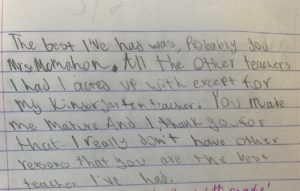 The best I've had was, Pobably you
Mrs. Mcmahon. All the other teachers
I had I acted up with except for
my Kindergarten teacher. You make
me mature And I, thank you for
that. I really don't have other
reasons that you are the best
teacher I've had.